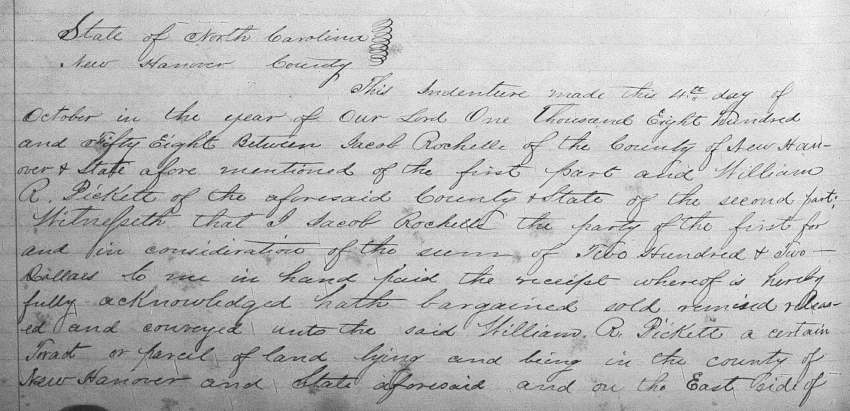 State of North Carolina
New Hanover County
This Indenture made this 4th day of
October in the year of Our Lord One Thousand Eight Hundred
and Fifty Eight Between Jacob Rochelle of the County of New Han-
over & State afore mentioned of the first part and William
R. Pickett of the aforesaid County & State of the second part;
Witnesseth that I Jacob Rochelle the party of the first for
and in consideration of the sum of Two Hundred & Two
Dollars to me in hand paid the receipt whereof is hereby
fully acknowledged hath bargained sold remised releas-
ed and conveyed unto the said William R. Pickett a certain
Tract or parcel of land lying and being in the county of
New Hanover and State aforesaid and on the East side of